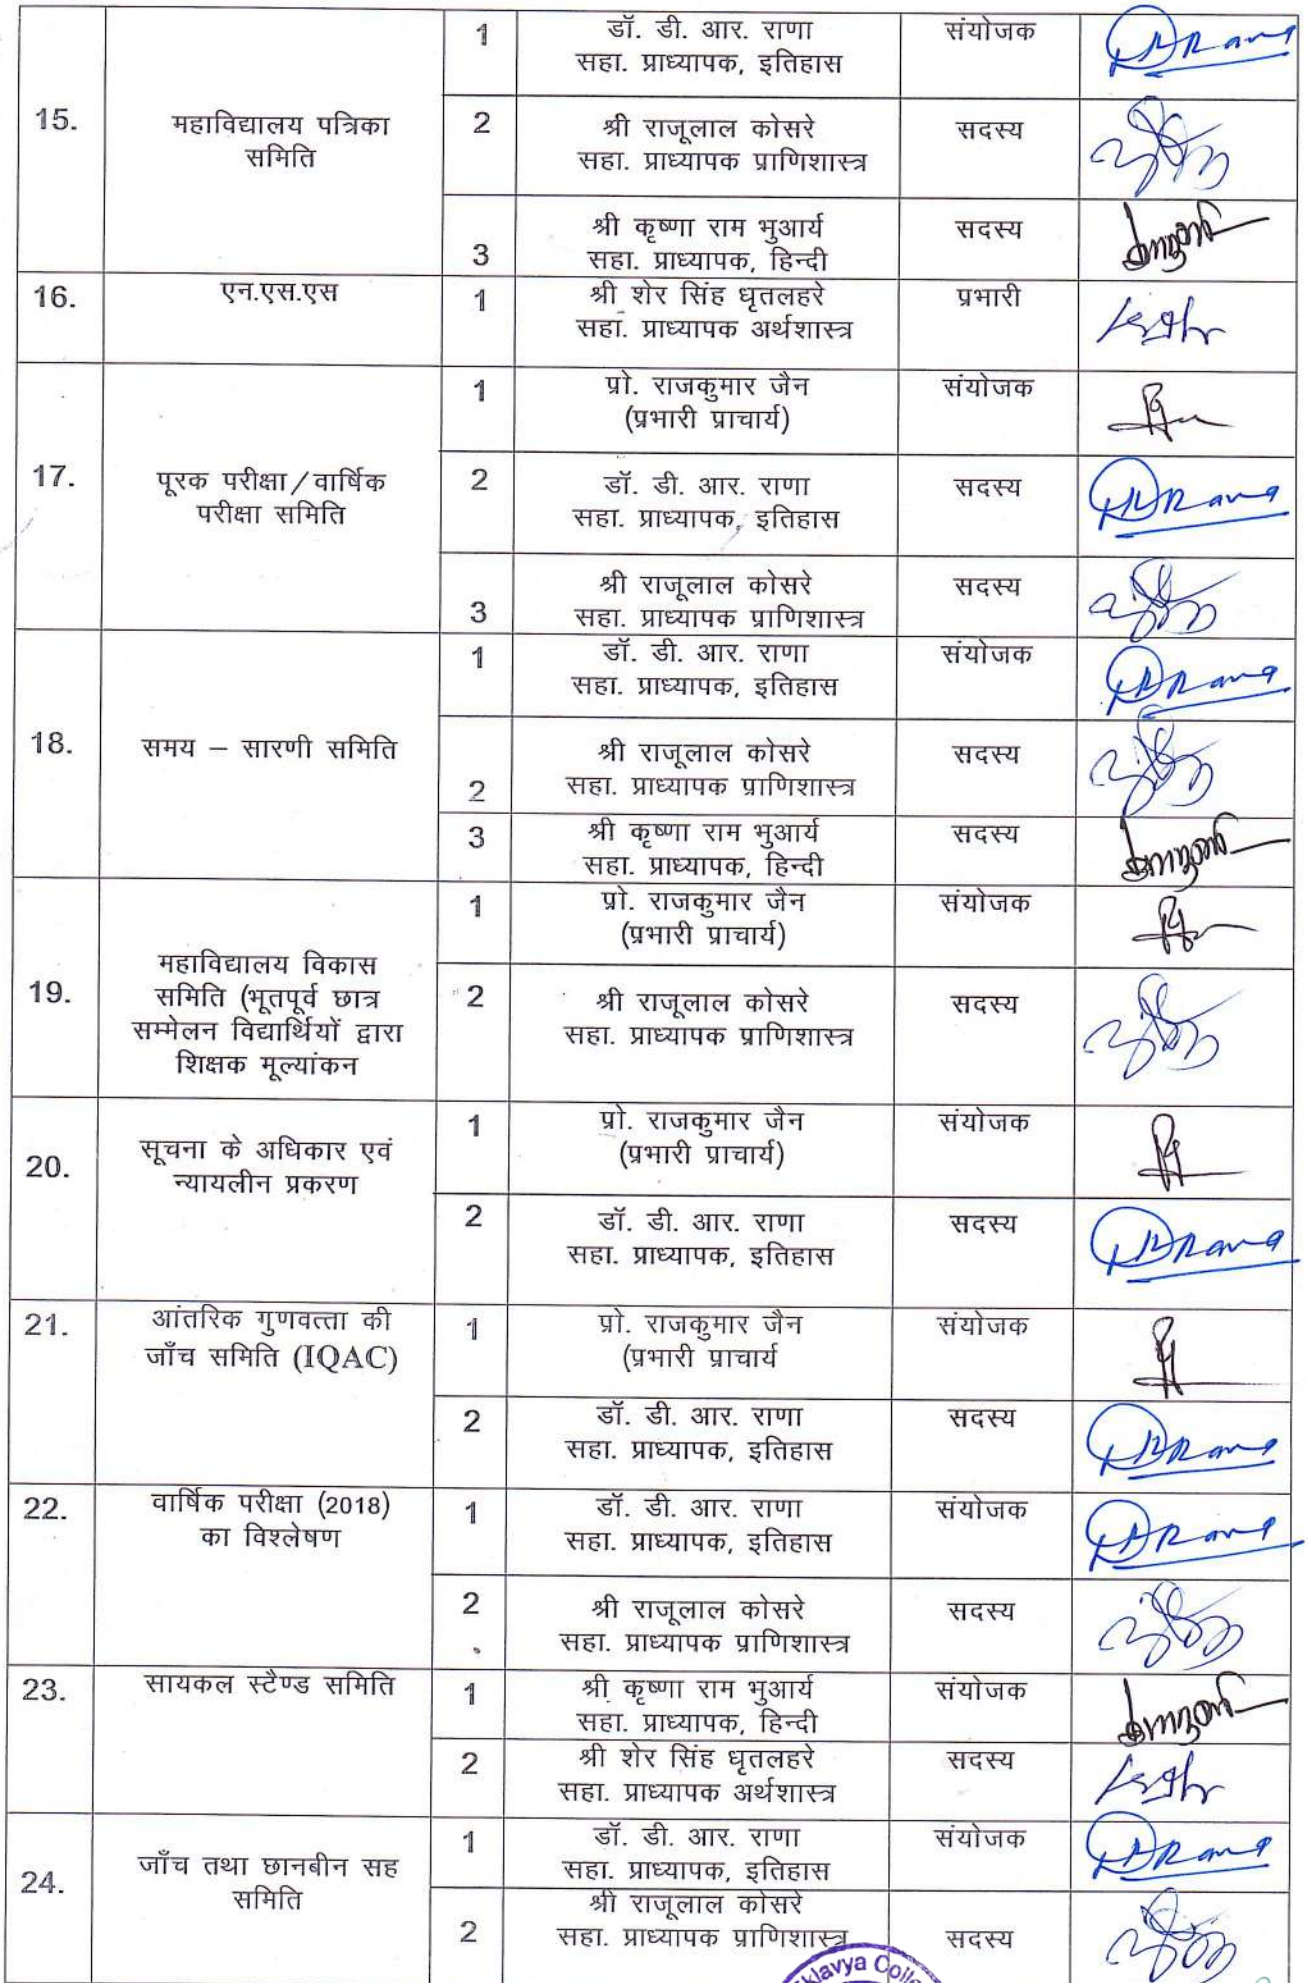 15.
महाविद्यालय पत्रिका
समिति
1
डॉ. डी. आर. राणा
सहा. प्राध्यापक, इतिहास
संयोजक
2
श्री राजूलाल कोसरे
सहा. प्राध्यापक प्राणिशास्त्र
सदस्य
3
श्री कृष्णा राम भुआर्य
सहा. प्राध्यापक, हिन्दी
सदस्य
16.
एन.एस.एस
1
श्री शेर सिंह धृतलहरे
सहा. प्राध्यापक अर्थशास्त्र
प्रभारी
17.
पूरक परीक्षा/वार्षिक
परीक्षा समिति
1
प्रो. राजकुमार जैन
(प्रभारी प्राचार्य)
संयोजक
2
डॉ. डी. आर. राणा
सहा. प्राध्यापक, इतिहास
सदस्य
3
श्री राजूलाल कोसरे
सहा. प्राध्यापक प्राणिशास्त्र
सदस्य
18.
समय – सारणी समिति
1
डॉ. डी. आर. राणा
सहा. प्राध्यापक, इतिहास
संयोजक
2
श्री राजूलाल कोसरे
सहा. प्राध्यापक प्राणिशास्त्र
सदस्य
3
श्री कृष्णा राम भुआर्य
सहा. प्राध्यापक, हिन्दी
सदस्य
19.
महाविद्यालय विकास
समिति (भूतपूर्व छात्र
सम्मेलन विद्यार्थियों द्वारा
शिक्षक मूल्यांकन
1
प्रो. राजकुमार जैन
(प्रभारी प्राचार्य)
संयोजक
2
श्री राजूलाल कोसरे
सहा. प्राध्यापक प्राणिशास्त्र
सदस्य
20.
सूचना के अधिकार एवं
न्यायलीन प्रकरण
1
प्रो. राजकुमार जैन
(प्रभारी प्राचार्य)
संयोजक
2
डॉ. डी. आर. राणा
सहा. प्राध्यापक, इतिहास
सदस्य
21.
आंतरिक गुणवत्ता की
जाँच समिति (IQAC)
1
प्रो. राजकुमार जैन
(प्रभारी प्राचार्य
संयोजक
2
डॉ. डी. आर. राणा
सहा. प्राध्यापक, इतिहास
सदस्य
22.
वार्षिक परीक्षा (2018)
का विश्लेषण
1
डॉ. डी. आर. राणा
सहा. प्राध्यापक, इतिहास
संयोजक
2
श्री राजूलाल कोसरे
सहा. प्राध्यापक प्राणिशास्त्र
सदस्य
23.
सायकल स्टैण्ड समिति
1
श्री कृष्णा राम भुआर्य
सहा. प्राध्यापक, हिन्दी
संयोजक
2
श्री शेर सिंह धृतलहरे
सहा. प्राध्यापक अर्थशास्त्र
सदस्य
24.
जाँच तथा छानबीन सह
समिति
1
डॉ. डी. आर. राणा
सहा. प्राध्यापक, इतिहास
संयोजक
2
श्री राजूलाल कोसरे
सहा. प्राध्यापक प्राणिशास्त्र
सदस्य